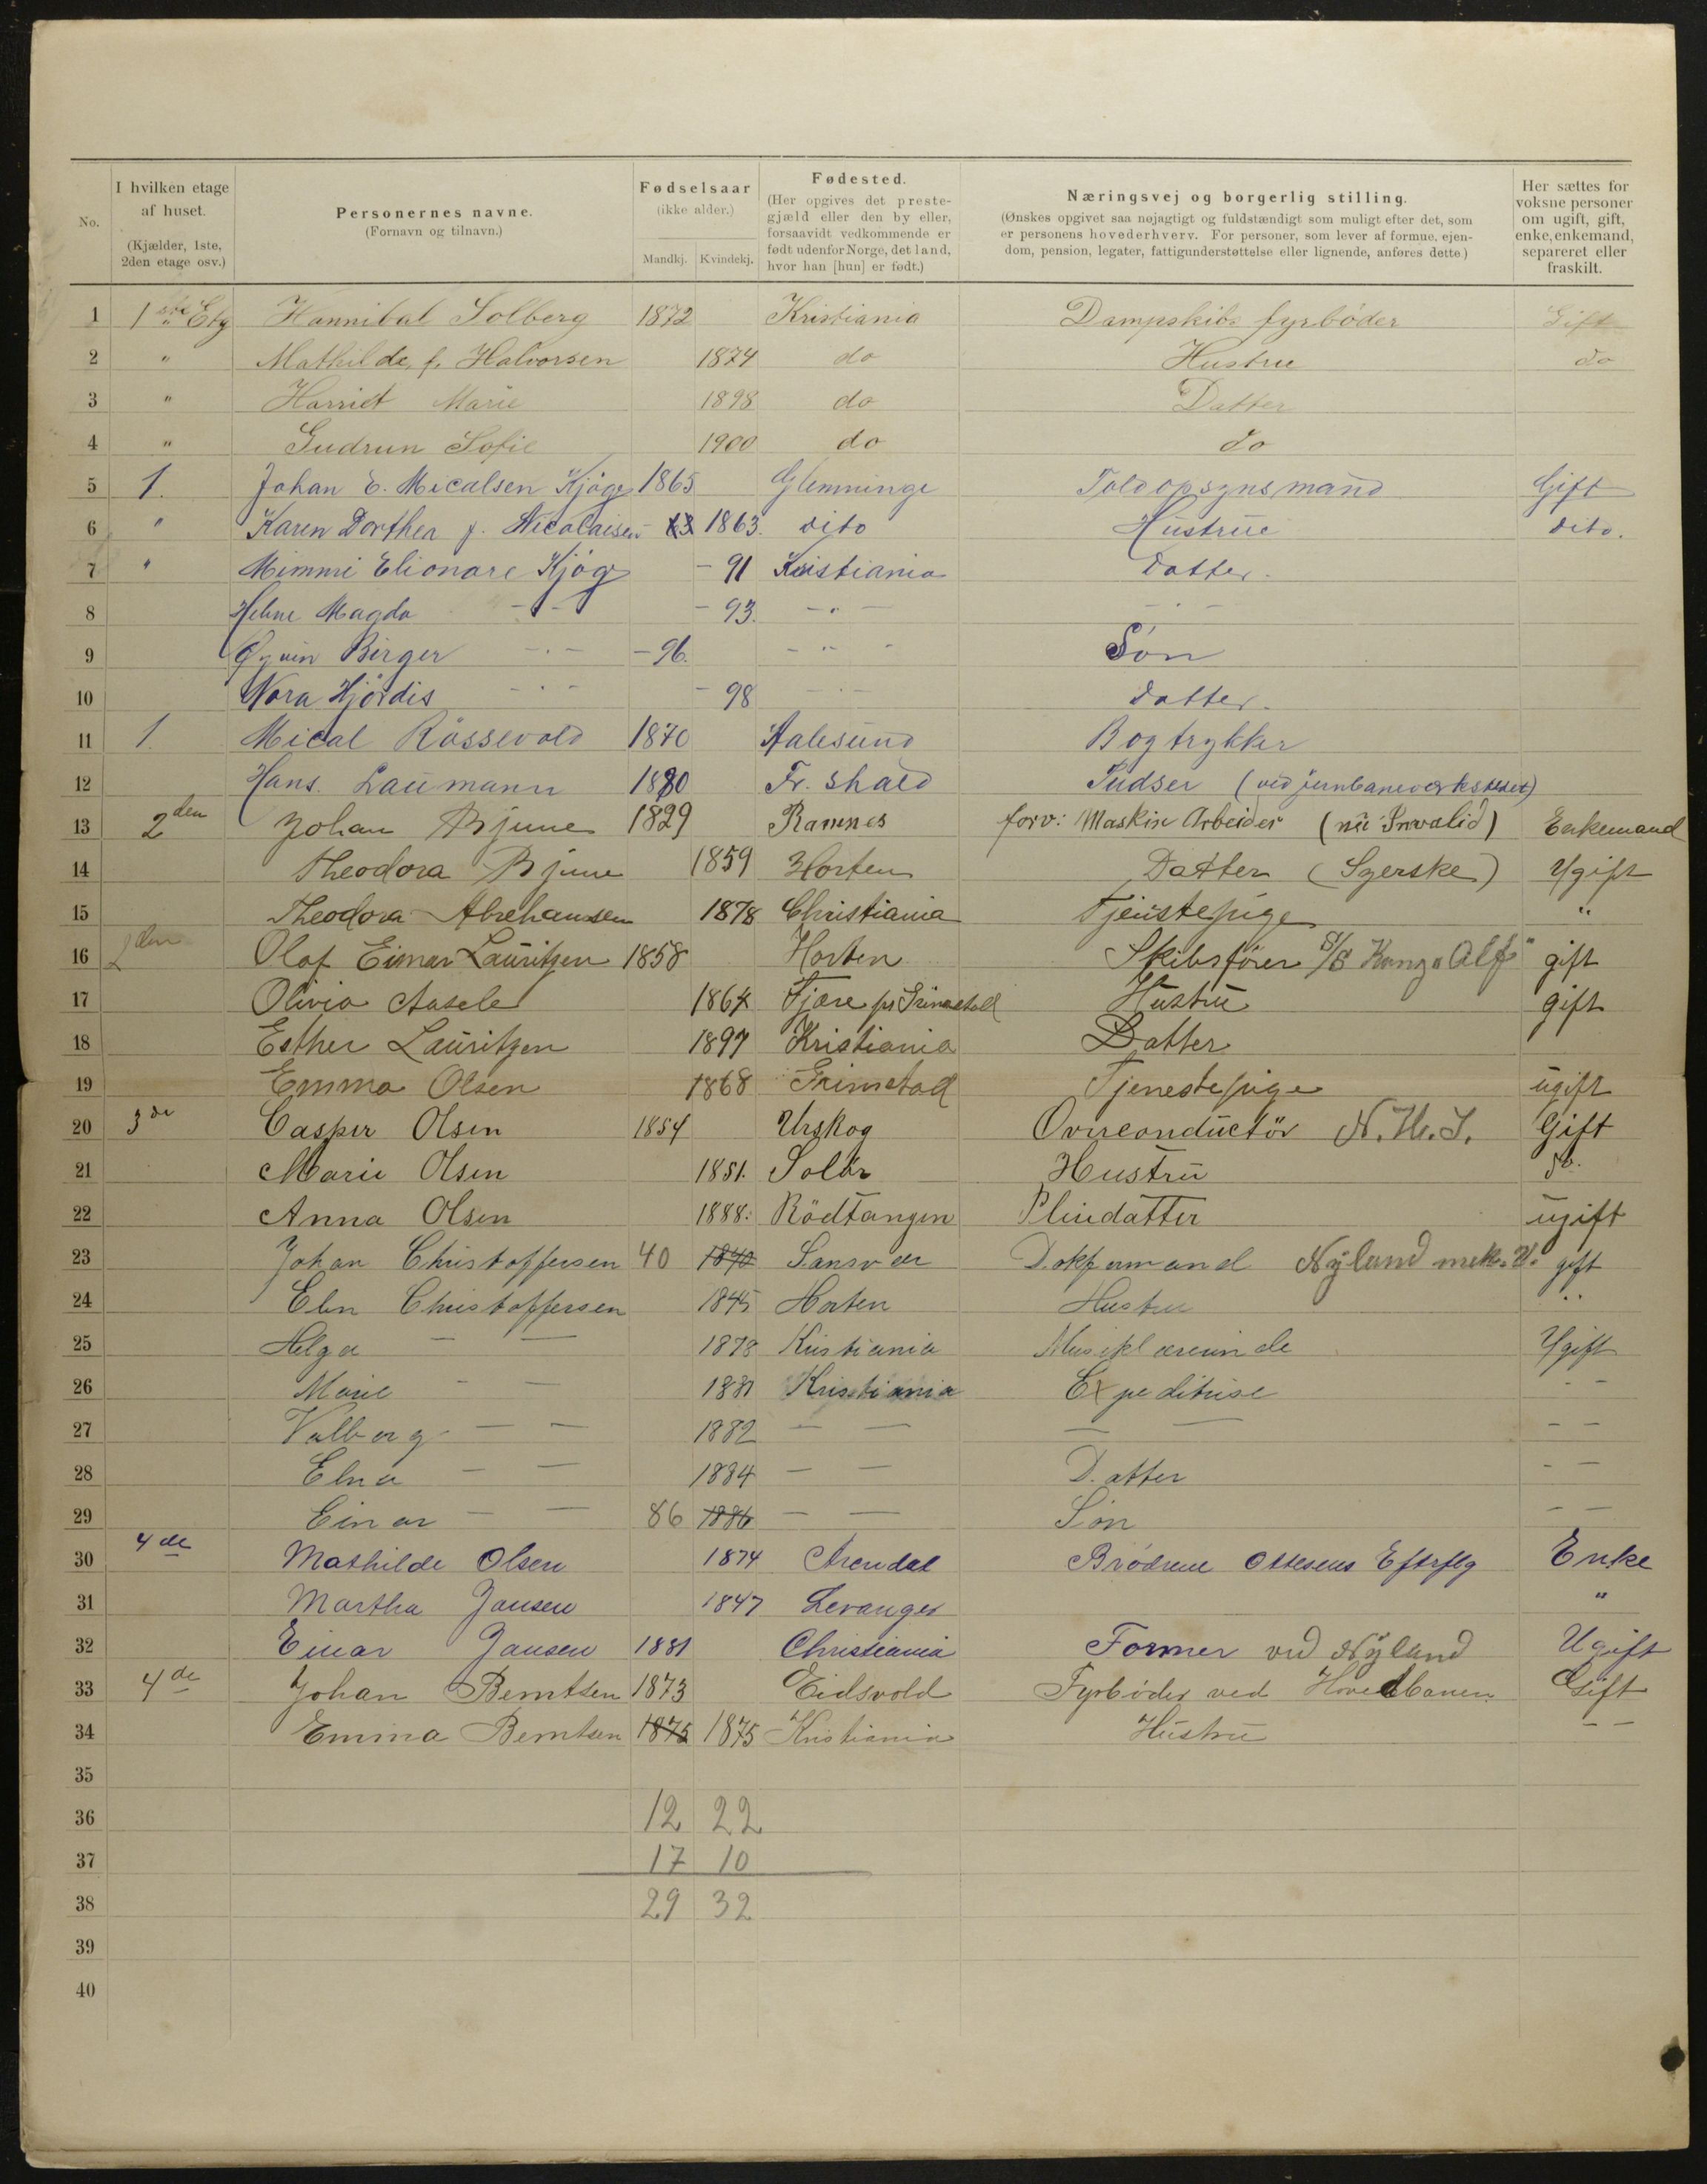 No.
I hvilken etage af huset. (Kjælder, 1ste, 2den etage osv.)
Personernes navne. (Fornavn og tilnavn.)
Fødselsaar (ikke alder.) Mandkj. Kvindekj.
Fødested. (Her opgives det prestegjæld eller den by eller, forsaavidt vedkommende er født udenfor Norge, det land, hvor han [hun] er født.)
Næringsvej og borgerlig stilling. (Ønskes opgivet saa nøjagtigt og fuldstændigt som muligt efter det, som er personens hovederhverv. For personer, som lever af formue, ejendom, pension, legater, fattigunderstøttelse eller lignende, anføres dette.)
Her sættes for voksne personer om ugift, gift, enke, enkemand, separeret eller fraskilt.
1 1ste Etg Hannibal Solberg 1872 Kristiania Dampskibs fyrbøder Gift
2 " Mathilde f. Halvorsen 1874 do Hustrue do
3 " Harriet Marie 1898 do Datter
4 " Gudrun Sofie 1900 do do
5 1. Johan E. Micalsen Kjøge 1865 Glemminge Toldopsynsmand Gift
6 " Karen Dorthea f. Nicolaisen 63 1863. dito Hustrue dito.
7 " Mimmi Elionare Kjøge - 91 Kristiania Datter.
8 Helene Magda - " - - 93. - " - - " -
9 Øyvin Birger - " - - 96. - " - Søn
10 Nora Hjördis - " - - 98 - " - Datter.
11 1. Mical Røssevold 1870 Aalesund Bogtrykker
12 Hans Laumann 1880 Fr. shald Pudser (ved jernbaneverkstedet)
13 2den Johan Bjune 1829 Ramnes forv: Maskin Arbeider (nu Invalid) Enkemand
14 Theodora Bjune 1859 Horten Datter (Syerske) Ugift
15 Theodora Abrehamsen 1878 Christiania Tjenstepige "
16 2den Olaf Eimar Lauritzen 1858 Horten Skibsfører S/S Kong "Alf" gift
17 Olivia Aasele 1864 Fjære pr Grimstad Hustru gift
18 Esther Lauritzen 1897 Kristiania Datter
19 Emma Olsen 1868 Grimstad Tjenestepige ugift
20 3de Casper Olsen 1854 Urskog Overconductör N.H.J. Gift
21 Marie Olsen 1851. Solør Hustru do.
22 Anna Olsen 1888. Rödtangen Pleiedatter ugift
23 Johan Christoffersen 40 1840 Sansvær Dokformand Nyland mek. V. gift
24 Elen Christoffersen 1845 Horten Hustru "
25 Helga — — 1878 Kristiania Musiklærerinde Ugift
26 Marie - — 1881 Kristiania Expeditrise - -
27 Valborg — — 1882 — — — — - -
28 Elna — — 1884 — — Datter - -
29 Einar — — 86 1886 — — Søn - -
30 4de Mathilde Olsen 1874 Arendal Brödrene Ottesens Efterflg Enke
31 Martha Jansen 1847 Levanger "
32 Einar Jansen 1881 Christiania Former ved Nyland Ugift
33 4de Johan Berntsen 1873 Eidsvold Fyrbøder ved Hovedbanen Gift
34 Emma Berntsen 1875 1875 Kristiania Hustru - -
35
36 12 22
37 17 10
38 29 32
39
40